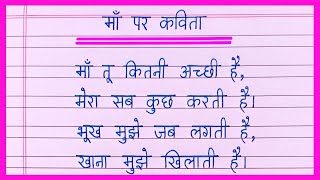 माँ पर कविता
माँ तू कितनी अच्छी है,
मेरा सब कुछ करती है।
भूख मुझे जब लगती है,
खाना मुझे खिलाती है।